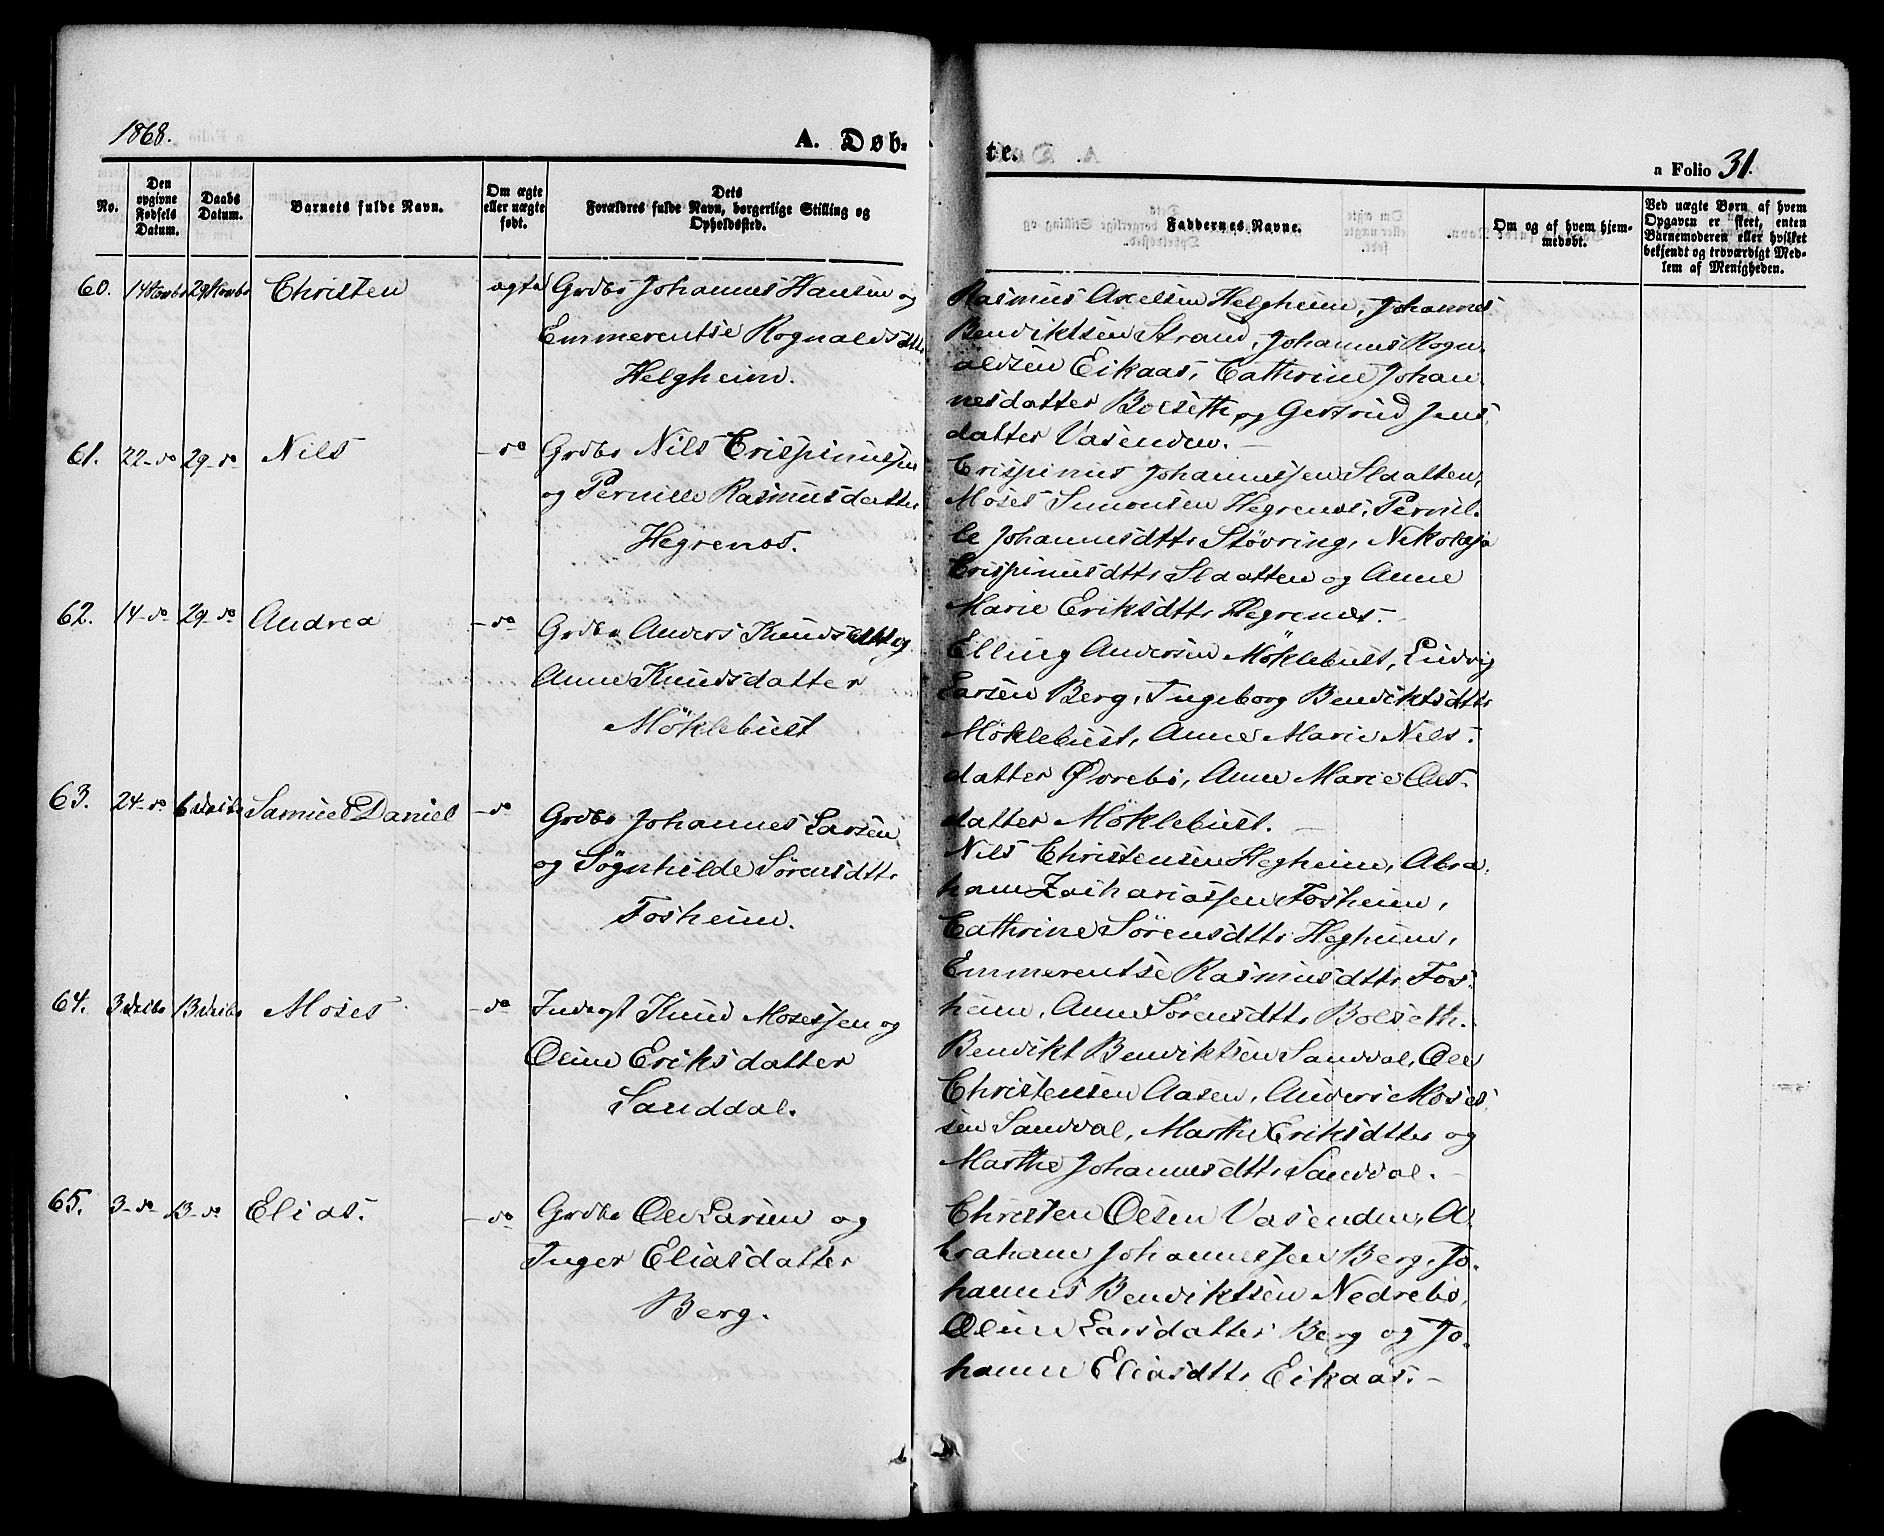 1868.
A. Døb-
te.
a Folio 31.
No.
Den opgivne Fødsels Datum.
Daabs Datum.
Barnets fulde Navn.
Om ægte eller uægte født.
Dets Forældres fulde Navn, borgerlige Stilling og Opholdssted.
Faddernes Navne.
Om og af hvem hjemmedøbt.
Ved uægte Børn af hvem Opgaven er skeet, enten Barnemoderen eller hvilket bekjendt og troværdigt Medlem af Menigheden.
60. 14 Novbr 29 Novbr Christen ægte Grdbr Johannes Hansen og
Emmerentse Rognaldsdttr
Helgheim.
Rasmus Axelsen Helgheim, Johannes
Bendiktsen Strand, Johannes Rogn-
aldsen Eikaas, Cathrine Johan-
nesdatter Bolseth, og Gertrud Jens-
datter Vasenden.
61. 22 - do 29 - do Nils - do Grdbr Nils Crispinussen
og Pernille Rasmusdatter
Hegrenæs.
Crispinus Johannessen Slaatten,
Moses Simonsen Hegrenæs, Pernil-
le Johannesdttr Støvring, Nikolaja
Crispinusdttr Slaatten og Anne
Marie Eriksdttr Hegrenæs.
62. 14 - do 29 - do Andrea - do Grdbr Anders Knudsen og
Anne Knudsdatter
Möklebust
Elling Andersen Möklebust, Ludvig
Larsen Berg, Ingeborg Bendiktsdttr
Möklebust, Anne Marie Nils-
datter Øvrebö, Anne Marie Ols-
datter Möklebust.
63. 24 - do 6 Decbr Samuel Daniel - do Grdbr Johannes Larsen
og Sögnhilde Sörensdttr
Fosheim.
Nils Christensen Hegheim, Abra-
ham Zachariassen Fosheim,
Cathrine Sörensdttr Hegheim,
Emmerentse Rasmusdttr Fos-
heim, Anne Sörensdttr Bolseth.
64. 3 Decbr 13 Decbr Moses - do Inderst Knud Mosessen og
Oline Eriksdatter
Sanddal.
Bendikt Bendiktsen Sanddal, Ole
Christensen Aasen, Anders Moses-
sen Sanddal, Marthe Eriksdttr og
Marthe Johannesdttr Sanddal.
65. 3 - do 13 - do Elias. - do Grdbr Ole Larsen og
Inger Eliasdatter
Berg.
Christen Olsen Vasenden, A-
braham Johannessen Berg, Jo-
hannes Bendiktsen Nedrebö,
Oline Larsdatter Berg og Jo-
hanne Eliasdttr Eikaas.